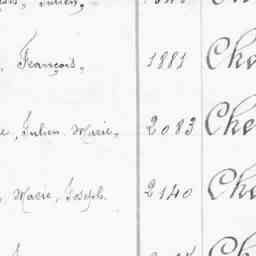 , François, 1881 Che
e, Julien Marie, 2083 Che
, Marie, Joseph. 2140 Che